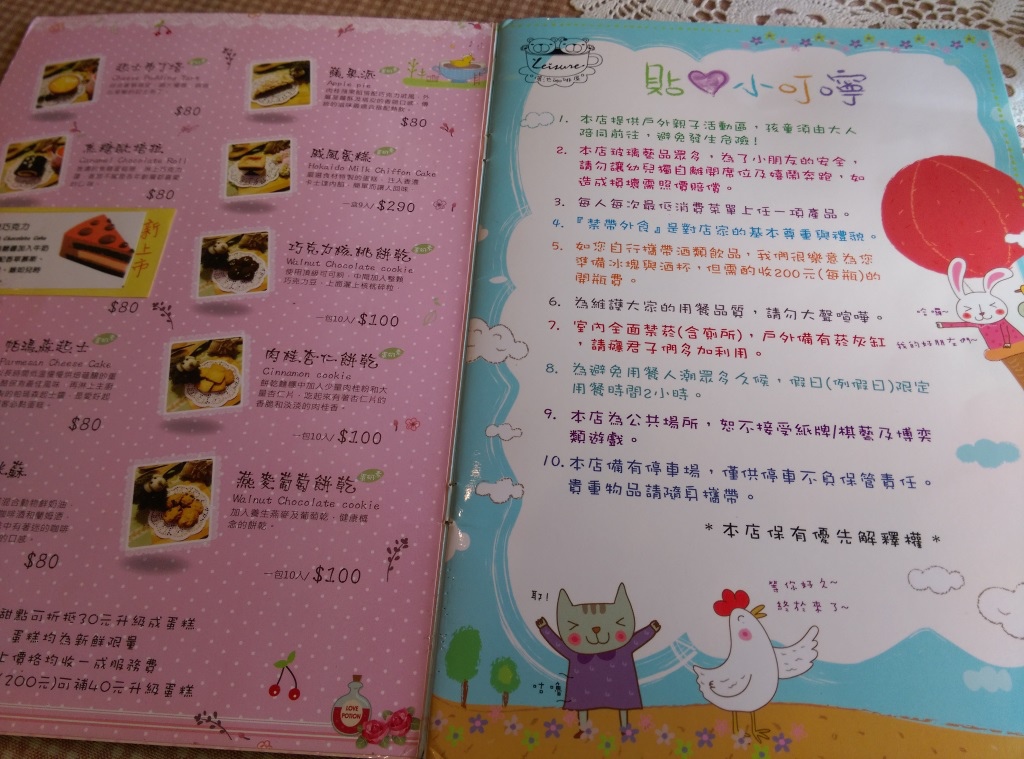 起士布丁塔
Cheese Pudding Tart
$80
蘋果派
Apple pie
$80
焦糖歐培拉
Caramel Chocolate Roll
$80
戚風蛋糕
Hokaido Milk Chiffon Cake
一盒9入/ $290
新上市
巧克力
$80
巧克力核桃餅乾
Walnut Chocolate cookie
使用頂級可可粉,中間加入整顆
巧克力豆,上面灑上核桃碎粒
一包10入/ $100
帕瑪森起士
Parmesan Cheese Cake
$80
肉桂杏仁餅乾
Cinnamon cookie
餅乾麵糰中加入少量肉桂粉和大
量杏仁片,吃起來有著杏仁片的
香脆和淡淡的肉桂香。
一包10入/ $100
蘇
$80
燕麥葡萄餅乾
Walnut Chocolate cookie
加入養生燕麥及葡萄乾,健康概
念的餅乾。
一包10入/ $100
甜點可折抵30元升級成蛋糕
蛋糕均為新鮮限量
上價格均收一成服務費
(200元)可補40元升級蛋糕
LOVE
POTION
Leisure
貼心小叮嚀
1. 本店提供戶外親子活動區,孩童須由大人
陪同前往,避免發生危險!
2. 本店玻璃藝品眾多,為了小朋友的安全,
請勿讓幼兒獨自離開席位及嬉鬧奔跑,如
造成損壞需照價賠償。
3. 每人每次最低消費菜單上任一項產品。
4. 『禁帶外食』是對店家的基本尊重與禮貌。
5. 如您自行攜帶酒類飲品,我們很樂意為您
準備冰塊與酒杯,但需酌收200元(每瓶)的
開瓶費。
6. 為維護大家的用餐品質,請勿大聲喧嘩。
7. 室內全面禁菸(含廁所),戶外備有菸灰缸
,請癮君子們多加利用。
8. 為避免用餐人潮眾多久候,假日(例假日)限定
用餐時間2小時。
9. 本店為公共場所,恕不接受紙牌/棋藝及博奕
類遊戲。
10. 本店備有停車場,僅供停車不負保管責任。
貴重物品請隨身攜帶。
*本店保有優先解釋權*
哈囉~
我的好朋友們~
耶!
等你好久~
終於來了~